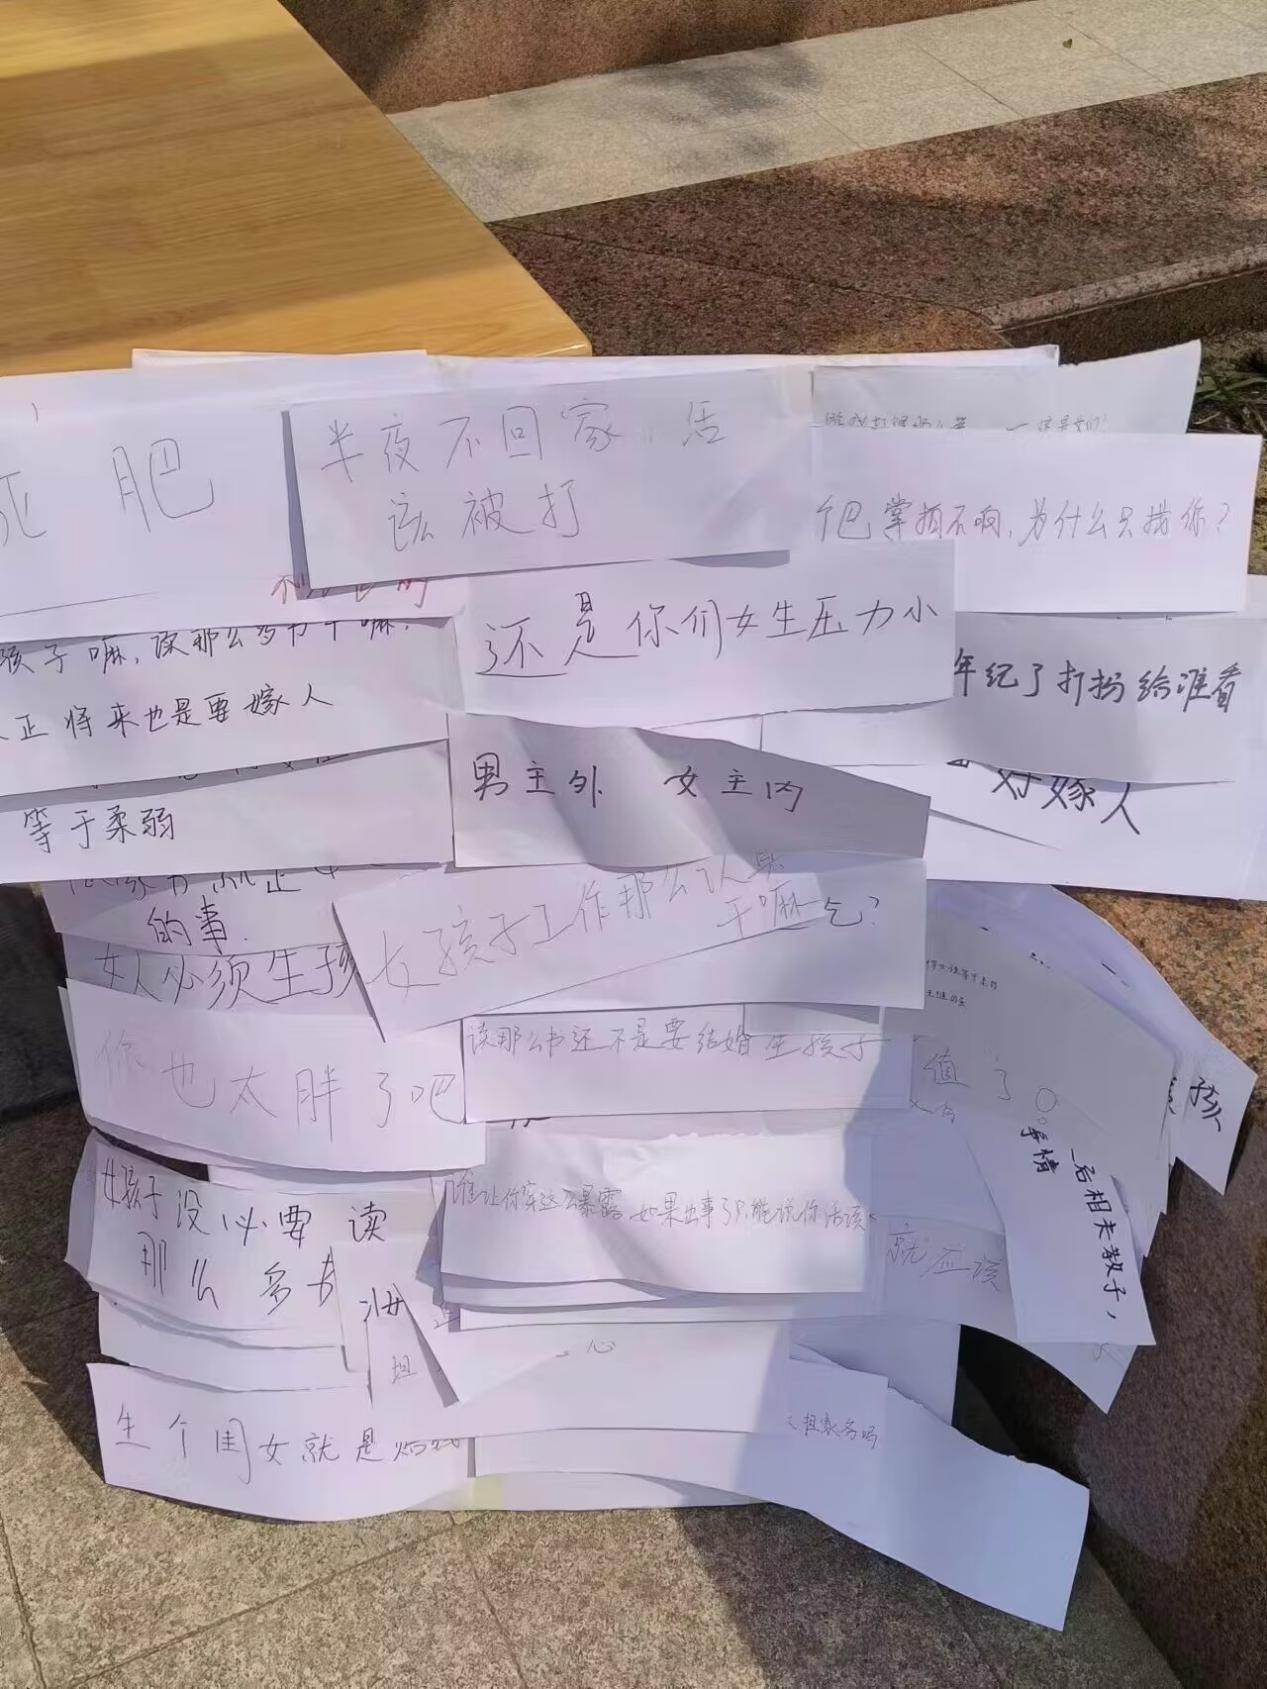 肥
半夜不回家 活
该被打
个巴掌拍不响,为什么只揍你?
还是你们女生压力小
孩子嘛,读那么多书干嘛?
正将来也是要嫁人
年纪了打扮给谁看
好嫁人
男主外 女主内
等于柔弱
的事.
女孩子工作那么认真
干嘛乞?
女人必须生孩
你也太胖了吧
读那么书还不是要结婚生孩子
值了。
孩
事情
后相夫教子,
女孩子没必要读
那么多书
谁让你穿这么暴露,如果出事了只能说你活该
就应该
担
心
生个闺女就是赔钱